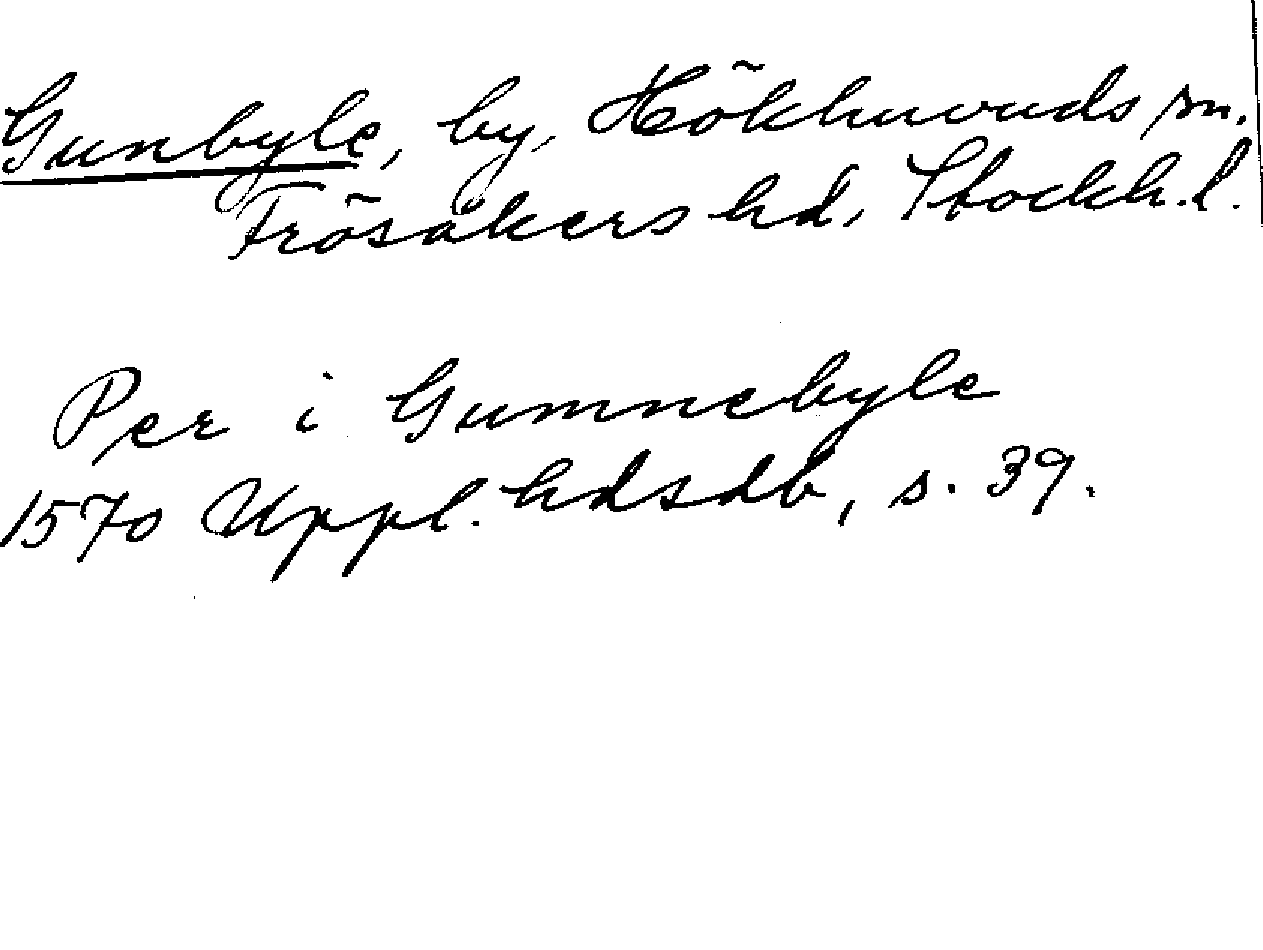 Gunbyle, by, Hökhuvuds sn.
Frösåkers hd, Stockh.l.
Per i Gumnebyle
1570 Uppl. hdsdb, s. 39.